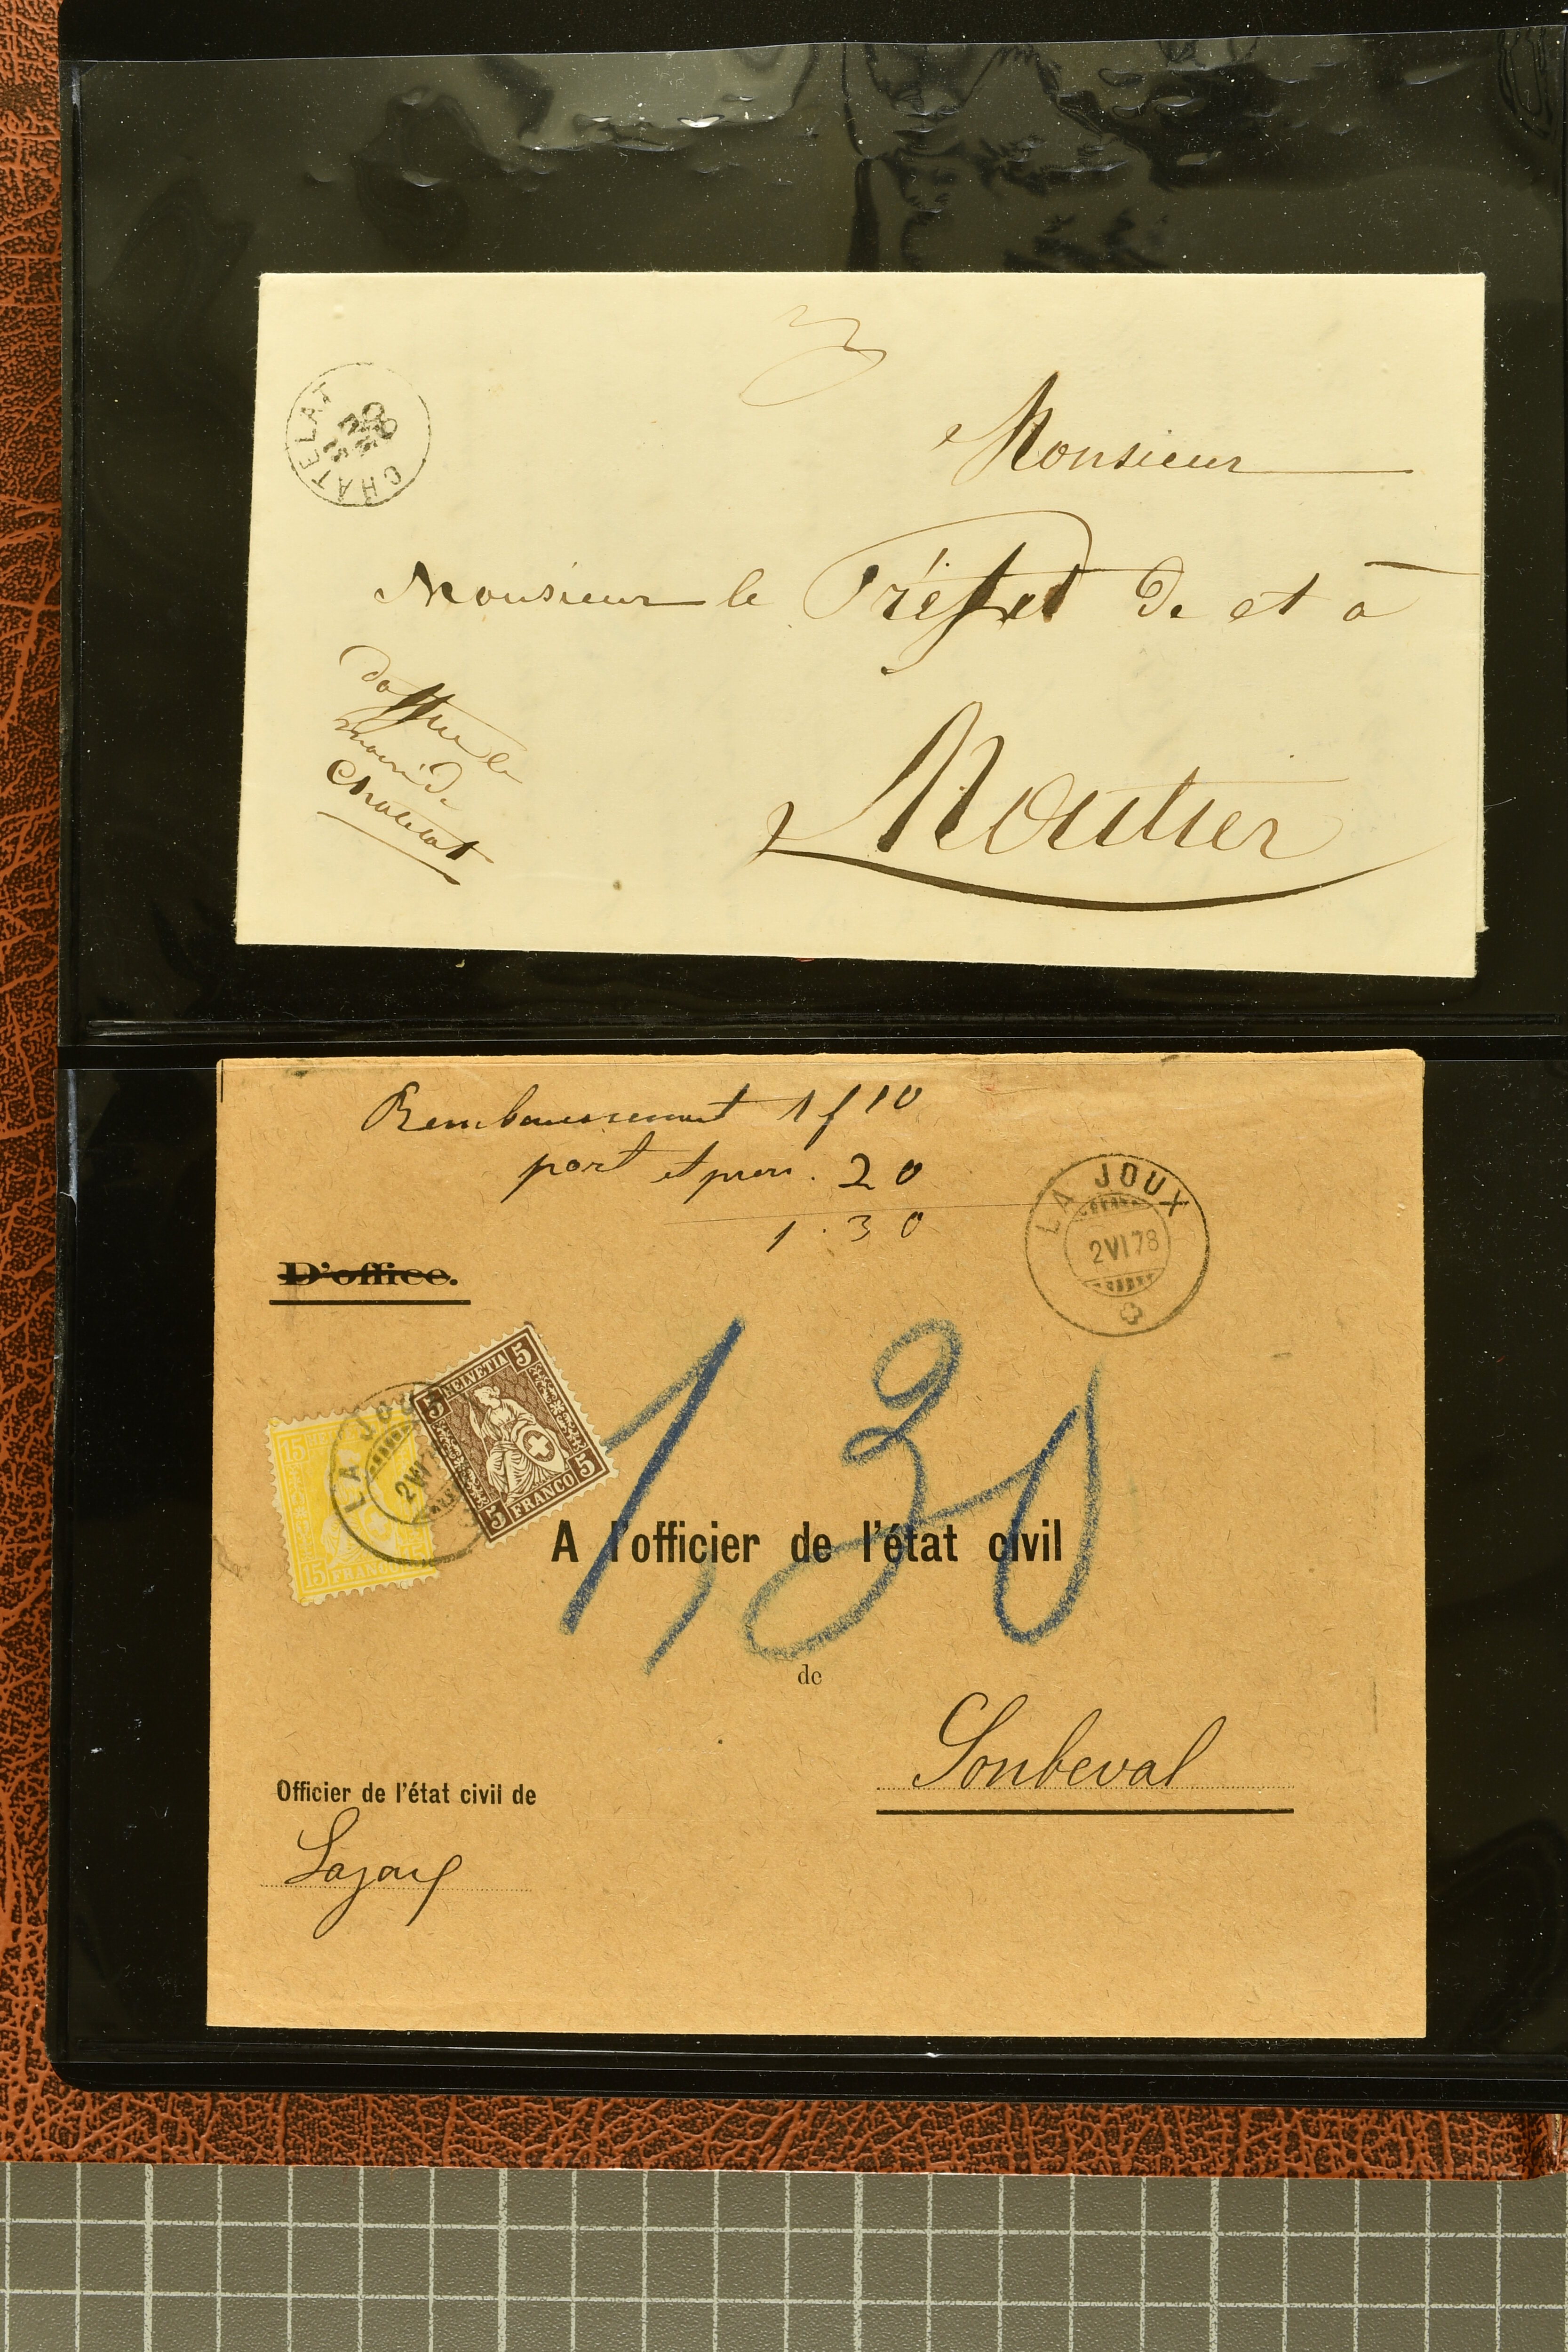 CHATELAT
Monsieur
Monsieur le Préfet de et à
d'office le
maire de
Chatelat
Moutier
Remboursement 1f10
port et prov. 20
1.30
LA JOUX
2 VI 78
D'office.
5 HELVETIA 5
5 FRANCO 5
15
15 FRANCO 15
LA JOUX
2 VI
1,30
A l'officier de l'état civil
de
Sonbeval
Officier de l'état civil de
Lajoux